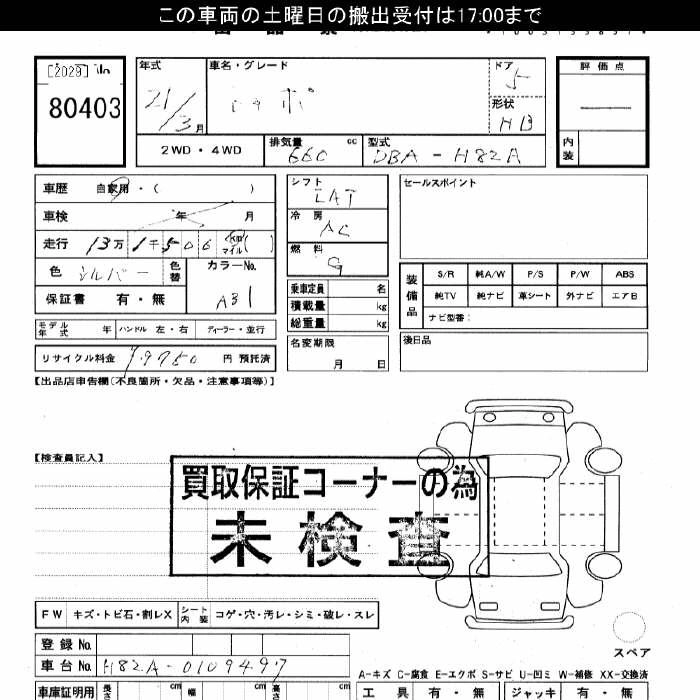 この車両の土曜日の搬出受付は17:00まで
80403
年式
21/3月
車名・グレード
トッポ
ドア
5
形状
HB
評価点
内装
2WD・4WD
排気量
660 cc
型式
DBA-H82A
車歴 自家用・( )
車検 年 月
走行 13万 1千 506 km マイル ( )
色 シルバー 色替
カラーNo.
A31
保証書 有・無
シフト
LAT
冷房
AC
燃料
G
乗車定員 名
積載量 kg
総重量 kg
セールスポイント
装備品
S/R 純A/W P/S P/W ABS
純TV 純ナビ 革シート 外ナビ エアB
ナビ型番:
モデル年式 年 ハンドル 左・右 ディーラー・並行
名変期限
月 日
後日品
リサイクル料金 円 預託済
【出品店申告欄(不良箇所・欠品・注意事項等)】
【検査員記入】
買取保証コーナーの為
未検査
FW キズ・トビ石・割レX シート内装 コゲ・穴・汚レ・シミ・破レ・スレ
スペア
登録No.
車台No. H82A-0109497
A-キズ C-腐食 E-エクボ S-サビ U-凹ミ W-補修 XX-交換済
車庫証明用 長さ cm 幅 cm 高さ cm
工具 有・無 ジャッキ 有・無